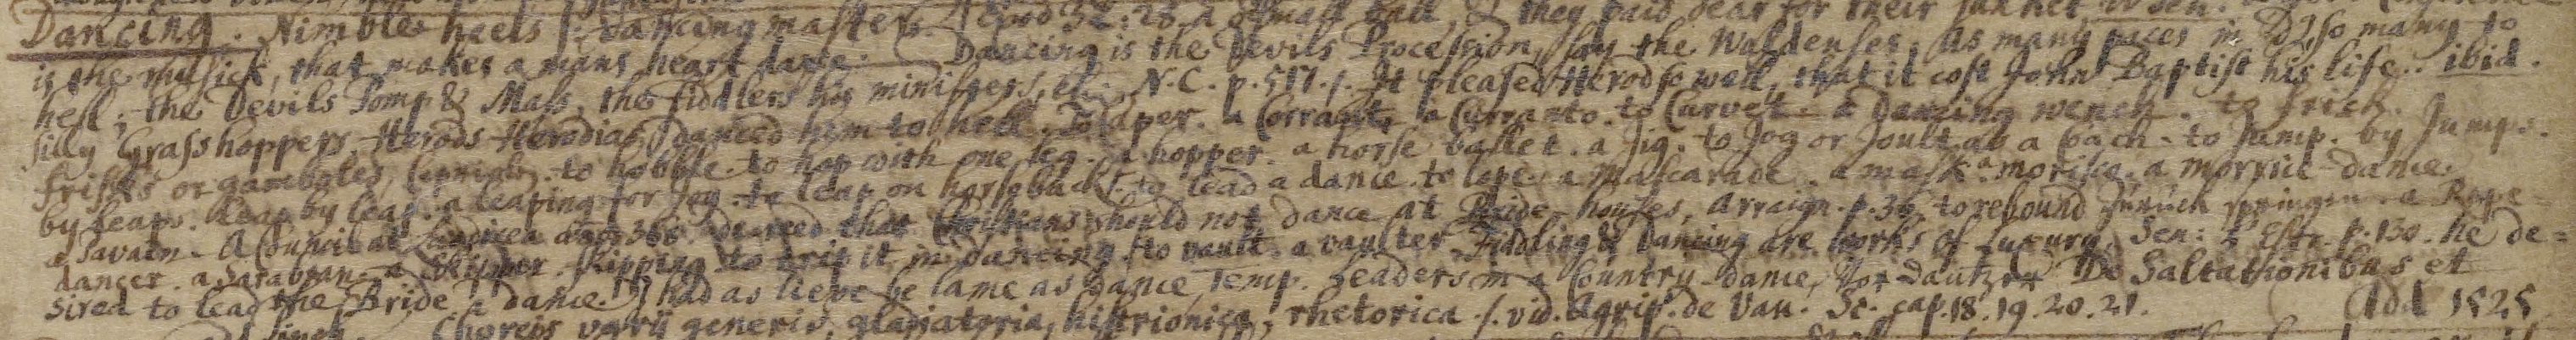 Dancing. Nimble heels. Dancing master. Exod 32:28. A dismall ball, & they paid dear for their
is the musick, that makes a mans heart dance. Dancing is the Devils Procession, say the Waldenses. As many paces in D, so many to
hell; the Devils Pomp & Mass, the fiddlers his ministers, N.C. p.517. /. It pleased Herod so well, that it cost John Baptist his life. ibid.
silly Grasshoppers. Herods Herodias danced him to hell. to Caper. a Corrant, a Curranto. to Curvet. a Dancing wench. to frick.
frisks or gamboles, to hobble. to hop with one leg. a hopper. a horse ballet. a Jig. to Jog or Joult as a Coach. to Jump. by Jumps.
by leaps. leap by leap. a leaping for Joy. to leap on horseback. to lead a dance. to lope. a Mascarade. a mask. a morisca. a morrice-dance.
a Pavain. A Council at Laodicea 366. decreed that Christians should not dance at Bride-houses, Arraign. p.39. to rebound zurück springen. a Rope-
dancer. a Saraban. a Skipper. skipping. to trip it in dancing. to vault. a vaulter. Fiddling & Dancing are works of Luxury. Sen: p.130. he de=
sired to lead the Bride a dance. I had as lieve be lame as dance, Temp. Leaders in a Country-dance, De Saltationibus et
Choreis varij generis, gladiatoria, histrionica, rhetorica. /. vid. Agrip. de Van. Sc. cap. 18. 19. 20. 21. Add 1525